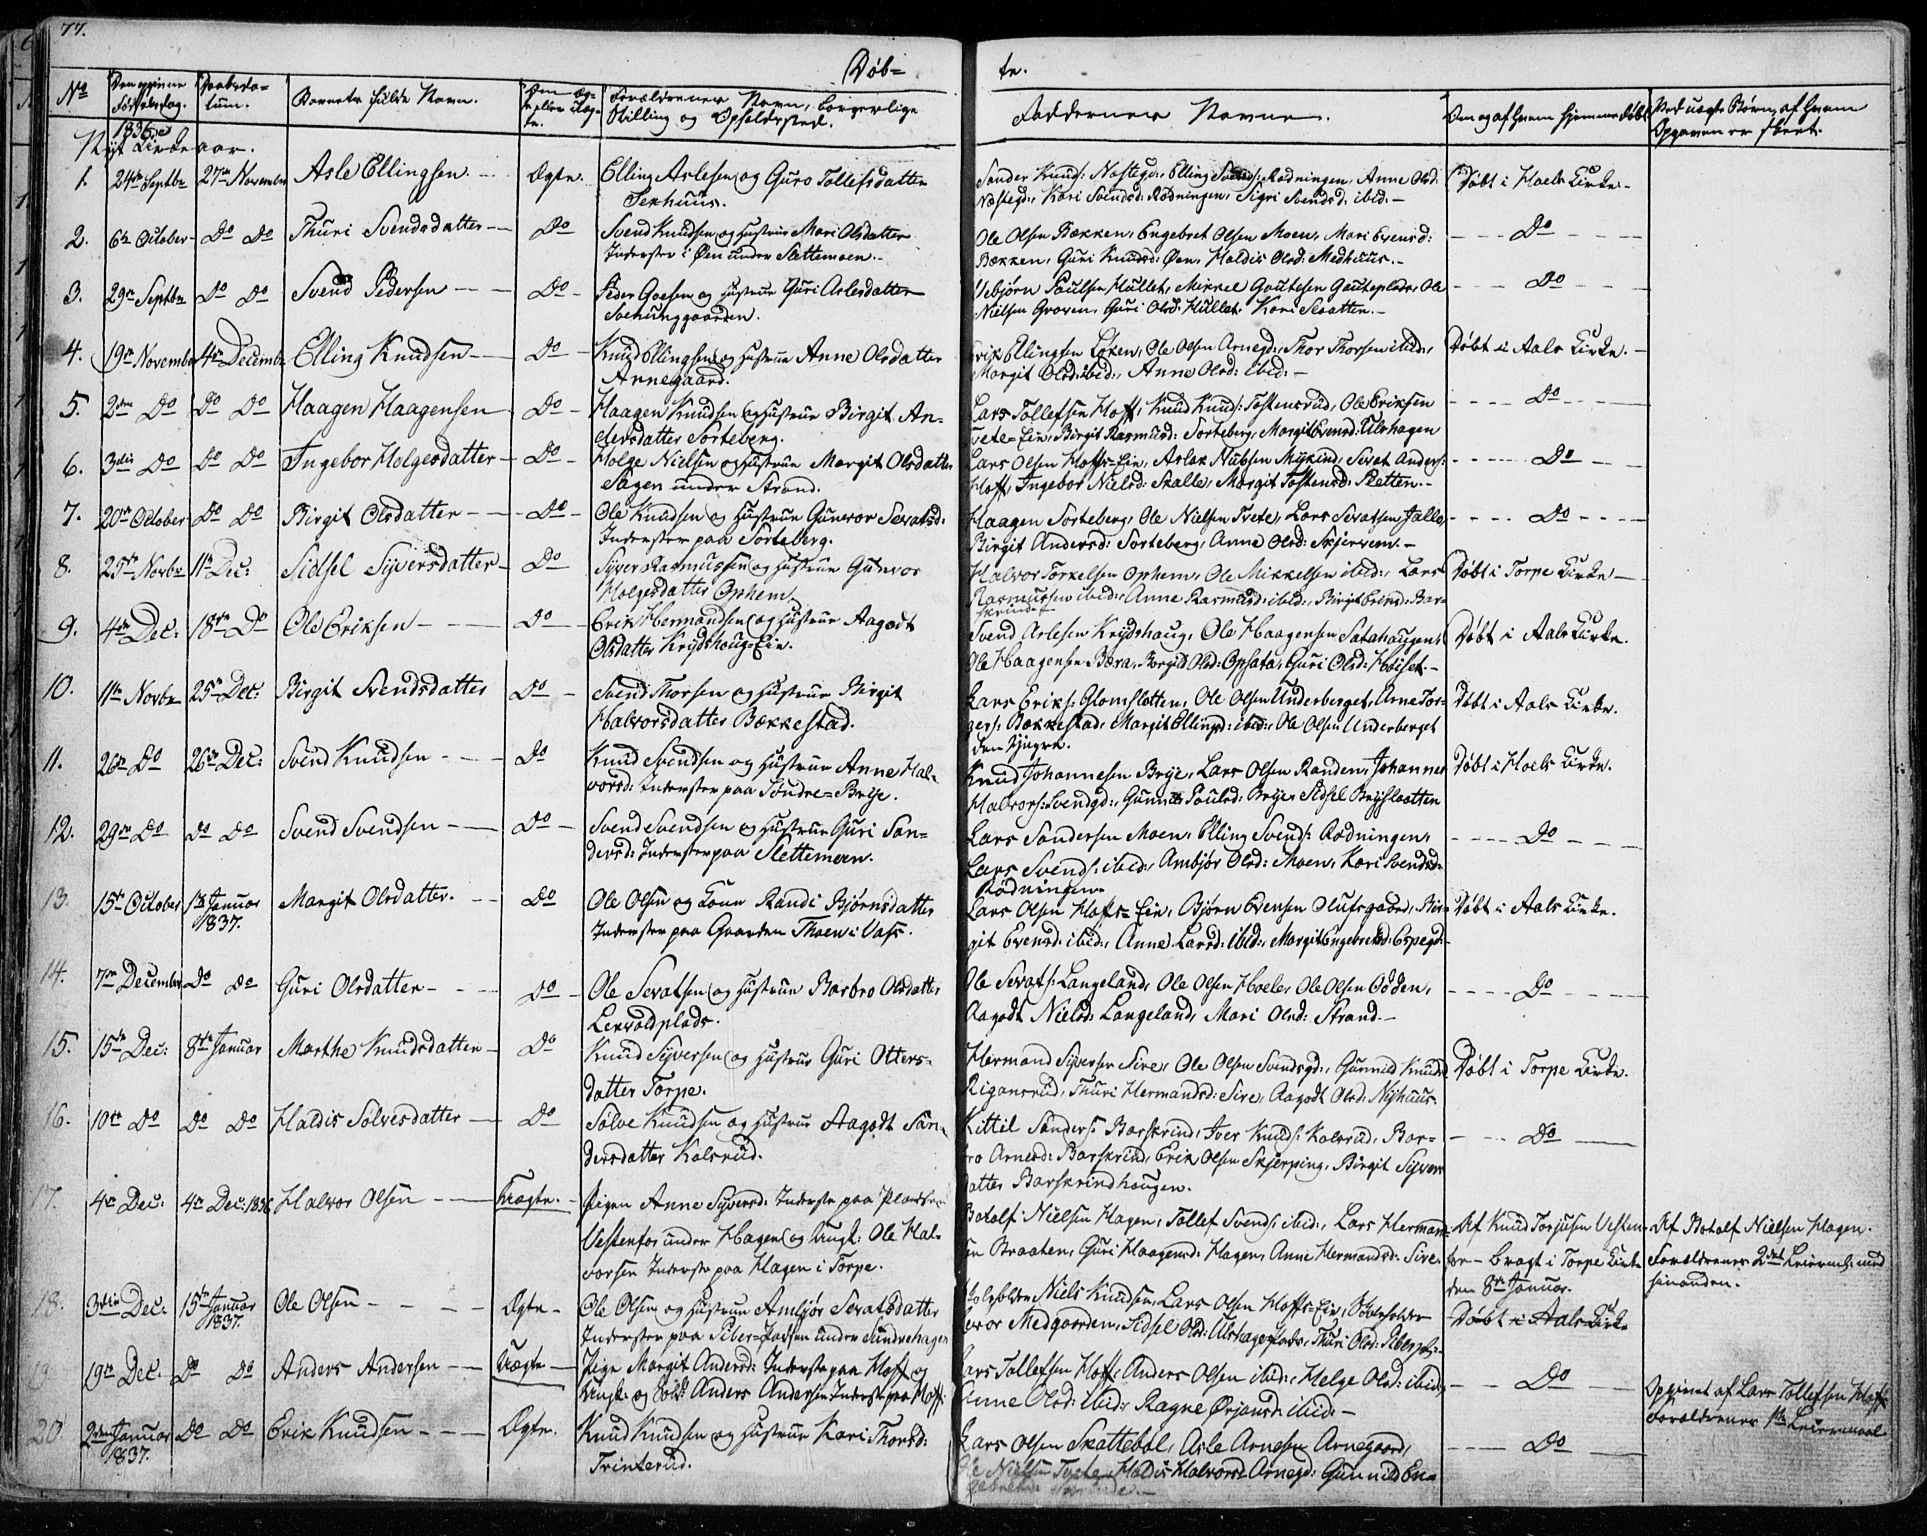 77.
Døb=
te.
No
Den opgivne Fødselsdag.
Daabsdatum.
Barnets fulde Navn.
Om ægte eller uægte.
Forældrenes Navn, borgerlige Stilling og Opholdssted.
Faddernes Navne.
Om og af hvem hjemmedøbt
Ved uægte Børn, af hvem Opgaven er skeet.
1836
Nyt Kirkeaar.
1. 24de Septbr 27de November Asle Ellingsen Ægte. Elling Aslesen og Guro Tollefsdatter
Sander Knuds: Nosteqd:, Elling Svends: Rødningen, Anne Olsd: Døbt i Hoels Kirke
Nosteqd:, Kari Svendsd: Rødningen, Sigri Svendsd: ibid:
2. 6te October Do Do Thuri Svendsdatter Do Svend Knudsen og Hustrue Mari Olsdatter
Inderster i Øen under Slettemoen.
Ole Olsen Bækken, Engebret Olsen Moen, Mari Evensd: Do
Bækken, Guri Knudsd: Øen, Haldis Olsd: Medhuus.
3. 29de Septbr Do Do Svend Pedersen Do Peder Goesen og Hustrue Guri Aslesdatter
Asbjørn Paulsen Hullet, Mikkel Gautesen Gauteplads, Ole Do
Nielsen Groven, Guri Olsd: Hullet, Kari Slaatten.
4. 19de November 4de December Elling Knudsen Do Knud Ellingsen og Hustrue Anne Olsdatter
Arnegaard.
Erik Ellingsen Løken, Ole Olsen Arnegd:, Thor Thorsen ibid:, Døbt i Aals Kirke.
Margit Olsd: ibid:, Anne Olsd: ibid:
5. 2den Do Do Do Haagen Haagensen Do Haagen Knudsen og Hustrue Birgit An-
dersdatter Sorteberg.
Lars Tollefsen Hoff, Knud Knuds: Tostensrud, Ole Eriksen Do
Tvete=Eie, Birgit Rasmusd: Sorteberg, Margit Evensd: Ulshagen
6. 3die Do Do Do Ingebor Holgesdatter Do Holge Nielsen og Hustrue Margit Olsdatter
Hagen under Strand.
Lars Olsen Hoffs=Eie, Aslak Nubsen Myking, Sevat Anders: Do
Hoff, Ingebor Nielsd: Skalle, Margit Tostensd: Sletten.
7. 20de October Do Do Birgit Olsdatter Do Ole Knudsen og Hustrue Gunvor Sevatsd:
Inderster paa Sorteberg.
Haagen Sorteberg, Ole Nielsen Tvete, Lars Sevatsen Jallo, Do
Birgit Andersd: Sorteberg, Anne Olsd: Skjerven.
8. 25de Novbr 11te Dec: Sidsel Syversdatter Do Syver Rasmussen og Hustrue Gunvor
Holgesdatter Ophem
Halvor Torkelsen Ophem, Ole Mikkelsen ibid:, Lars Døbt i Torpe Kirke
Rasmussen ibid:, Anne Rasmusd: ibid:, Birgit Eriksd: Bar-
skrind.
9. 4de Dec: 18de Do Ole Eriksen Do Erik Hermandsen og Hustrue Aagodt
Olsdatter Krydshoug=Eie.
Svend Aslesen Krydshaug, Ole Haagensen Satahaugen, Døbt i Aals Kirke.
Ole Haagensen Bæra, Borgild Olsd: Opsata, Guri Olsd: Høiset.
10. 11te Novbr 25de Dec: Birgit Svendsdatter Do Svend Thorsen og Hustrue Birgit
Halvorsdatter Bækkestad.
Lars Eriks: Glomslotten, Ole Olsen Underberget, Arne Tor- Døbt i Aals Kirke.
gers: Bækkestad, Margit Ellingsd: ibid:, Ole Olsen Underberget
den Yngre.
11. 26de Do 26de Dec: Svend Knudsen Do Knud Svendsen og Hustrue Anne Hal-
vorsd: Inderster paa Søndre=Brye.
Knud Johannesen Brye, Lars Olsen Randen, Johannes Døbt i Hoels Kirke.
Halvors: Svendgd:, Gunild Paulsd: Brye, Sidsel Bryslaatten
12. 29de Do Do Do Svend Svendsen Do Svend Svendsen og Hustrue Guri San-
dersd: Inderster paa Slettemoen.
Lars Sandersen Moen, Elling Svends: Rødningen, Do
Lars Svends: ibid:, Ambjør Olsd: Moen, Kari Svendsd:
Rødningen
13. 15de October 1ste Januar 1837. Margit Olsdatter. Do Ole Olsen og Kone Randi Bjørnsdatter
Inderster paa Gaarden Thoen i Vats.
Lars Olsen Hoffs=Eie, Bjørn Evensen Olufsgaard, Bir- Døbt i Aals Kirke.
git Evensd: ibid:, Anne Larsd: ibid:, Margit Engebretsd: Espegd:
14. 7de December Do Do Guri Olsdatter Do Ole Sevatsen og Hustrue Barbro Olsdatter
Lerooldplads.
Ole Sevats: Langeland, Ole Olsen Hoele, Ole Olsen Odden, Do
Aagodt Nielsd: Langeland, Mari Olsd: Strand.
15. 15de Dec: 8de Januar Marthe Knudsdatter Do Knud Syversen og Hustrue Guri Otters-
datter Torpe.
Hermand Syversen Sire, Ole Olsen Svendsgd:, Gunnild Knudsd: Døbt i Torpe Kirke.
Rigansrud, Thuri Hermandsd: Sire, Aagodt Olsd: Nyhuus.
16. 10de Do Do Do Haldis Sølvesdatter Do Sølve Knudsen og Hustrue Aagodt San-
dersdatter Kolsrud.
Kittil Sanders: Barskrind, Iver Knuds: Kolsrud, Bar- Do
bro Arnesd: Barskrind, Erik Olsen Skjerping, Birgit Syvers-
datter Barskrindhougen.
17. 4de Dec: 4de Dec: 1836 Halvor Olsen Uægte. Pigen Anne Syversd: Inderste paa Pladsen
Vestenfor under Hagen og Ungk: Ole Hal-
vorsen Inderste paa Hagen i Torpe.
Botolf Nielsen Hagen, Tollef Svends: ibid:, Lars Herman- Af Knud Torjusen Vesten- Af Botolf Nielsen Hagen.
sen Braaten, Guri Haagensd: Hagen, Anne Hermandsd: Sire. for – bragt i Torpe Kirke Forældrenes 2det Leiermaal med
den 8de Januar. hinanden.
18. 3die Dec: 15de Januar 1837. Ole Olsen Ægte Ole Olsen og Hustrue Ambjør Sevatsdatter
Inderster paa Piber=Pladsen under Sundrehagen
Niels Knudsen, Lars Olsen Hoffs=Eie, Døbt i Aals Kirke
Medgaarden, Sidsel Olsd: Ulshagen, Thuri Olsd:
19. 19de Dec: Do Do Anders Andersen Uægte Pige Margit Andersd: Inderste paa Hoff og
Ungk: og Sold: Anders Andersen Inderst paa Hoff.
Lars Tollefsen Hoff, Anders Olsen ibid:, Helge Olsd: ibid:, Do Opgivet af Lars Tollefsen Hoff
Anne Olsd: ibid:, Ragne Ørjansd: ibid: Forældrenes 1ste Leiermaal.
20. 2den Januar 1837. Do Do Erik Knudsen Ægte. Knud Knudsen og Hustrue Kari Thorsd:
Trinterud.
Lars Olsen Skattebøl, Asle Arnesen Arnegaard, Do
Ole Nielsen Tvete, Haldis Halvorsd: Arnegd:, Gunnild En-